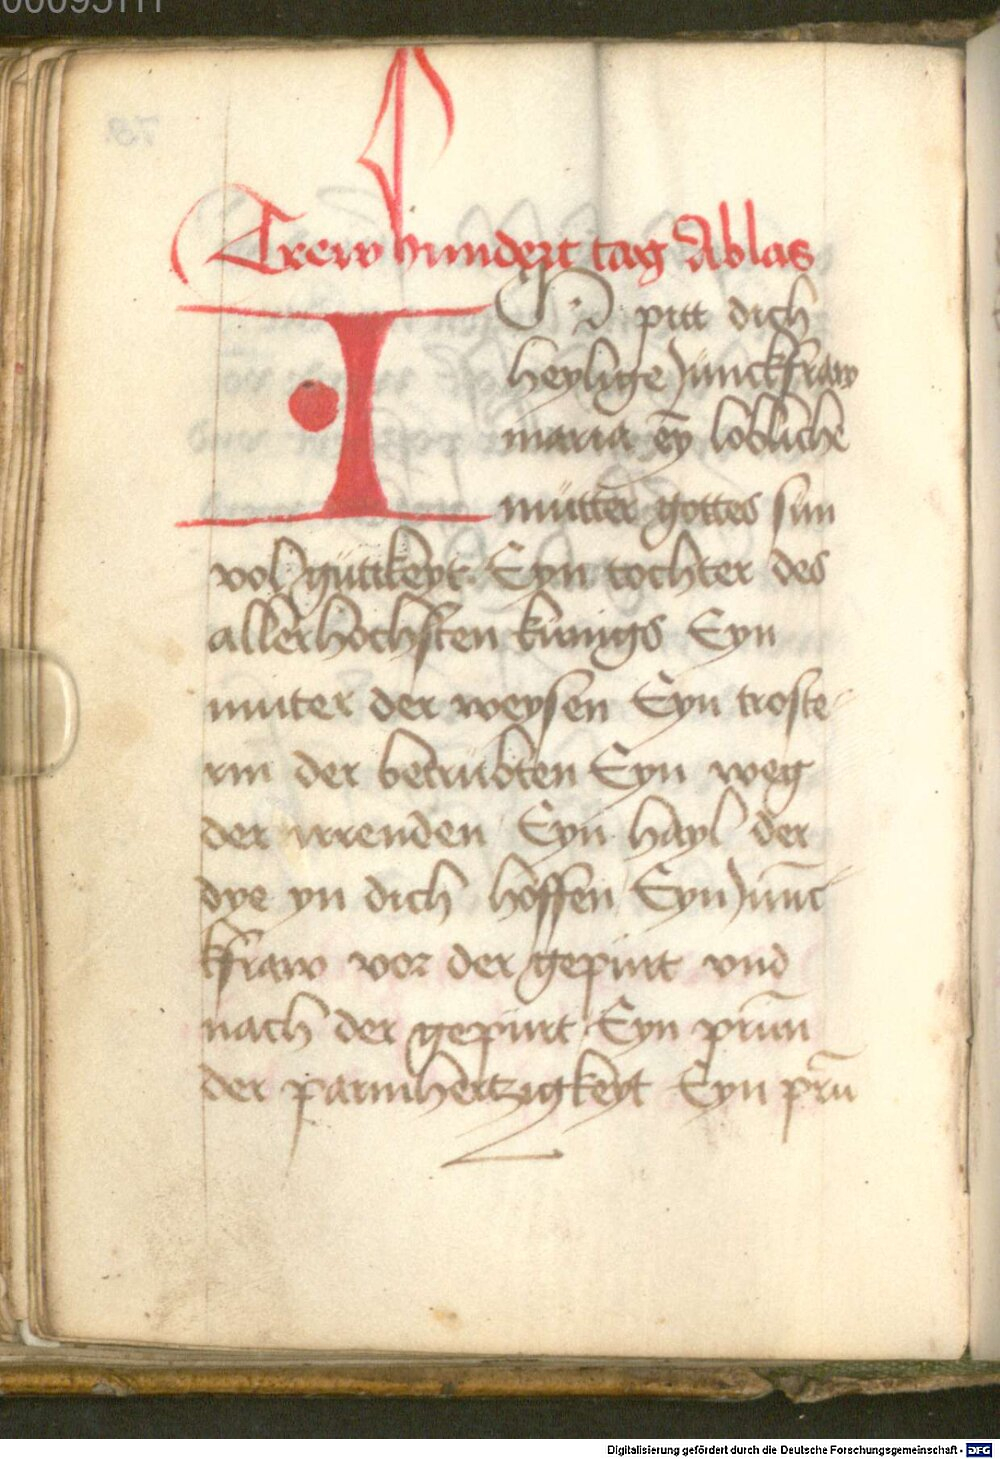 Trew hundert tag Ablas
ICh pitt dich
heylige Junckfraw
maria eȳ loblichē
mutter gottes sun
vol guttkeyt Eyn tochter des
allerhochsten kunigs Eyn
muter der weysen Eyn troste
rin der betrubten Eyn weg
der irrenden Eyn hayl der
dye yn dich hoffen Eyn Junc
kfraw vor der gepurt vnd
nach der gepurt Eyn prūn
der parmhertzigkeyt Eyn prū
Digitalisierung gefördert durch die Deutsche Forschungsgemeinschaft - DFG